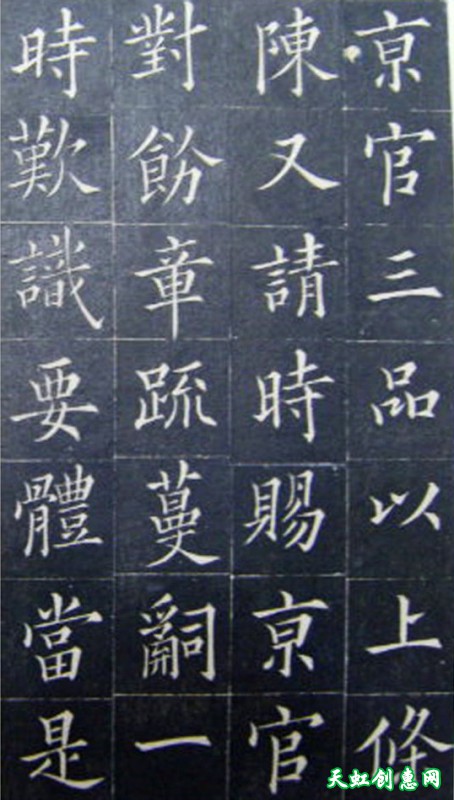 亰官三品以上條
陳又請時賜亰官
對飭章疏蔓辭一
時歎識要體當是
天虹创惠网